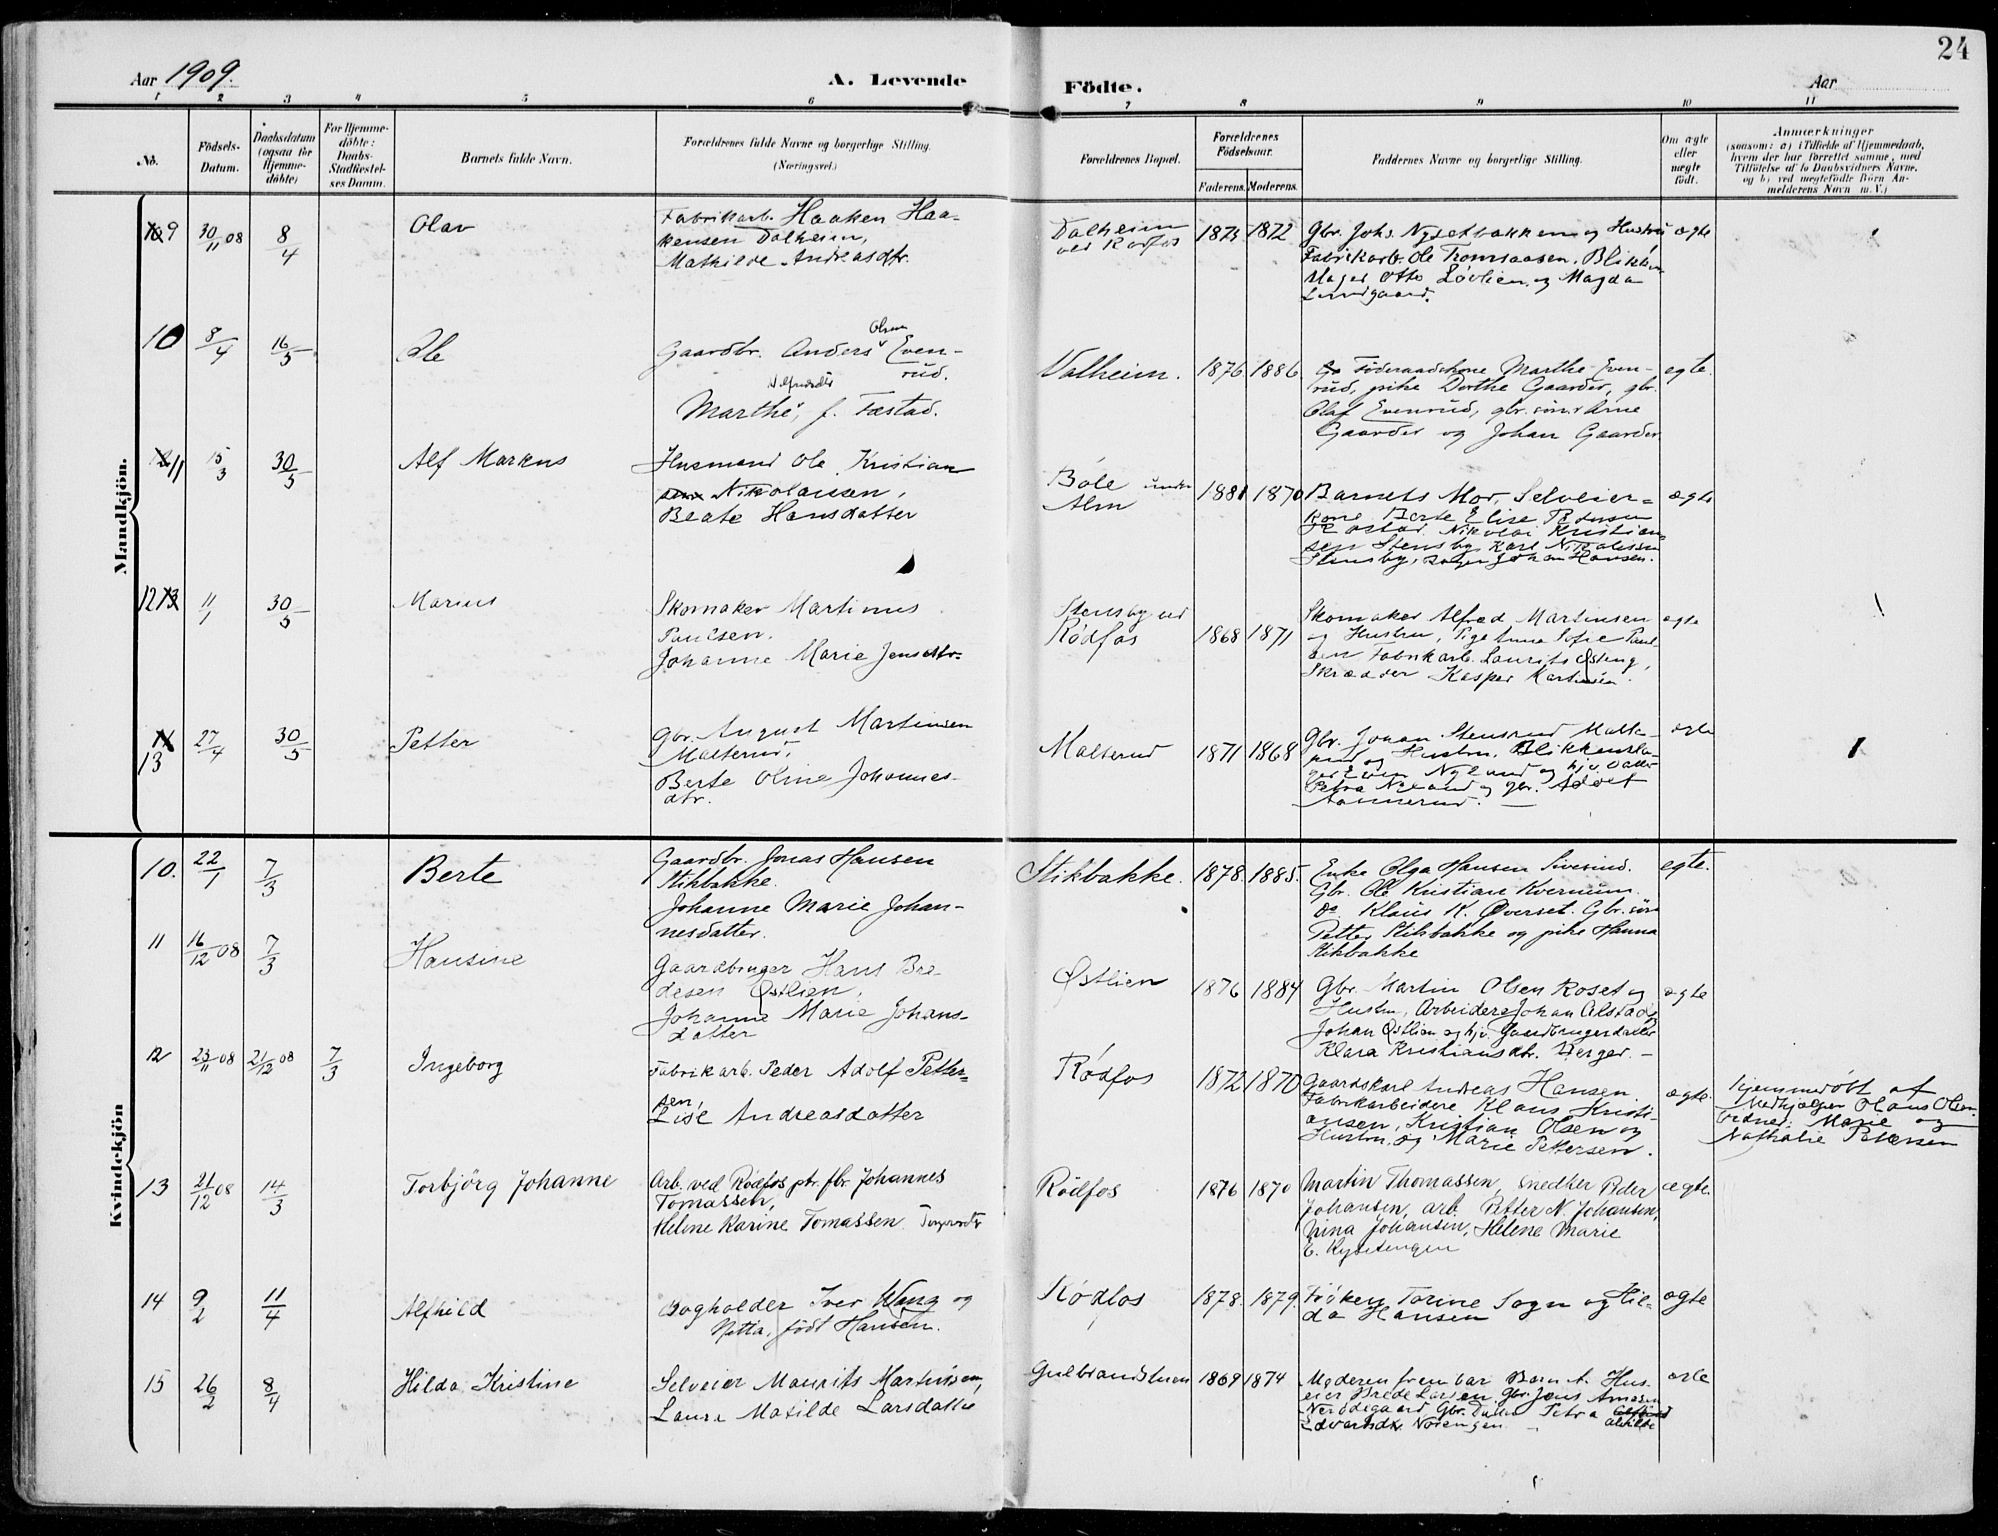 24
Aar 1909.
A. Levende
Födte.
Aar
1 2 3 4 5 6 7 8 9 10 11
No.
Födsels-
Datum.
Daabsdatum
(ogsaa for
Hjemme-
döbte)
For Hjemme-
döbte:
Daabs-
Stadfæstel-
ses Datum.
Barnets fulde Navn.
Forældrenes fulde Navne og borgerlige Stilling
(Næringsvei.)
Forældrenes Bopæl.
Forældrenes
Födselsaar.
Faderens. Moderens.
Faddernes Navne og borgerlige Stilling.
Om ægte
eller
uægte
født.
Anmærkninger
(saasom: a) i Tilfælde af Hjemmedaab,
hvem der har forrettet samme, med
Tilföielse af to Daabsvidners Navne,
og b) ved uægtefödte Börn An-
melderens Navn m. V.)
Mandkjön.
9
30/11 08
8/4
Olav
Fabrikarb. Haaken Haa-
kensen Dalheim,
Mathilde Andreasdtr.
Dalheim
ved Rødfos
1873 1872
Gbr. Johs. Nysetbakken og Hustru
Fabrikarb. Ole Tromsaasen, Blikken-
slager Otto Løvlien og Magda
Lundgaard.
ægte
10
8/4
16/5
Ole
Gaardbr. Anders Olsen Even-
rud.
Marthe, f. Fæstad.
Valheim.
1876 1886
Föderaadskone Marthe Even-
rud, pike Dorthe Gaarder, gbr.
Olaf Evenrud, gbr. sön Arne
Gaarder og Johan Gaarder
egte.
11
15/3
30/5
Alf Markus
Husmand Ole Kristian
Nikolausen,
Beate Hansdatter
Bøle under
Alm
1881 1870
Barnets Mor, Selveier-
kone Berte Elise Pedersen
Nikolai Kristian-
sen Stensby, Karl Nikolaisen
Stensby, Johan Hansen.
ægte
12 13
11/1
30/5
Marius
Skomaker Martinus
Paulsen.
Johanne Marie Jensdtr.
Stensby ved
Rødfos
1868 1871
Skomaker Alfred Martinsen
og Hustru, Pige Anna Sofie Paul-
sen Fabrikarb. Laurits Østeng,
Skrædder Kasper Martinsen.
ægte
13
27/4
30/5
Petter
Gbr. August Martinsen
Malterud,
Berte Oline Johannes-
dtr.
Malterud
1871 1868
Gbr. Johan Stensrud Malte-
rud og Hustru, Blikkensla-
ger Even Nylund og hjv. Datter
Petra Nylund og gbr. Adolf
ægte
Kvindekjön
10.
22/1
7/3
Berte
Gaardbr. Jonas Hansen
Stikbakke.
Johanne Marie Johan-
nesdatter.
Stikbakke.
1878. 1885.
Enke Olga Hansen Sivesind.
Gbr. Ole Kristian Kvernum.
Do Klaus K. Øverset. Gbr. sön
Petter Stikbakke og pike Hanna
Stikbakke
egte.
11
16/12 08
7/3
Hansine
Gaardbruger Hans Bre-
desen Østlien,
Johanne Marie Johans-
datter
Østlien
1876 1884
Gbr. Martin Olsen Roset og
Hustru, Arbeidere Johan Alstad og
Johan Østlien og hjv. Gaardbrugerdatter
Klara Kristiansdtr. Berger. -
ægte
12
23/11 08
21/12 08
7/3
Ingeborg
Fabrikarb. Peder Adolf Petter-
sen,
Lise Andreasdatter
Rødfos
1872 1870
Gaardskarl Andreas Hansen.
Fabrikarbeidere Klaus Kristi-
ansen, Kristian Olsen og
Hustru, og Marie Pettersen.
ægte.
Hjemmedøbt af
Medhjælper Olaus Olsen.
Vidner: Marie og
Nathalie Petersen
13
21/12 08
14/3
Torbjörg Johanne
Arb. ved Rødfos ptr. fbr. Johannes
Tomassen,
Helene Karine Tomassen
Rødfos
1876 1870
Martin Thomassen, snedker Peder
Johansen, arb. Petter N. Johansen,
Nina Johansen, Helene Marie
ægte.
14
9/2
11/4
Alfhild
Bogholder Iver Wang og
Netta, født Hansen.
Rødfos
1878. 1879.
Frøken Torine Sogn og Hil-
da Hansen
ægte
15
26/2
8/4
Hilda Kristine
Selveier Maurits Martinsen,
Laura Matilde Larsdatter
Gulbrandstuen
1869 1874
Moderen frembar Barnet. Hus-
eier Brede Larsen Gbr. Jens
Gbr. Datter Petra